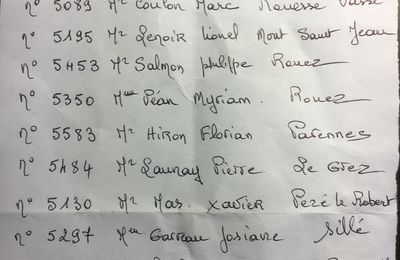 n° 5089 Mr Coulon Marc Rouesse Vassé
n° 5195 Mr Lenoir Lionel Mont Saint Jean
n° 5453 Mr Salmon philippe Rouez
n° 5350 Mme Péan Myriam. Rouez
n° 5583 Mr Hiron Florian Parennes
n° 5484 Mr Launay Pierre Le Grez
n° 5130 Mr Mas. xavier Pezé le Robert
n° 5297 Mme Garreau Josiane Sillé